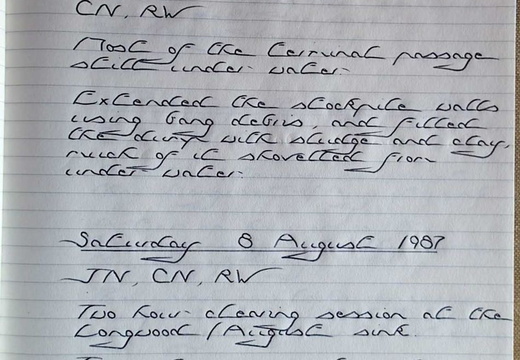 CN, RW
Most of the terminal passage
still under water.
Extended the stockpile walls
using bang debris, and filled
the dump with sludge and clay,
much of it shovelled from
under water.
Saturday 8 August 1987
JN, CN, RW
Two hour clearing session at the
Longwood / August sink.